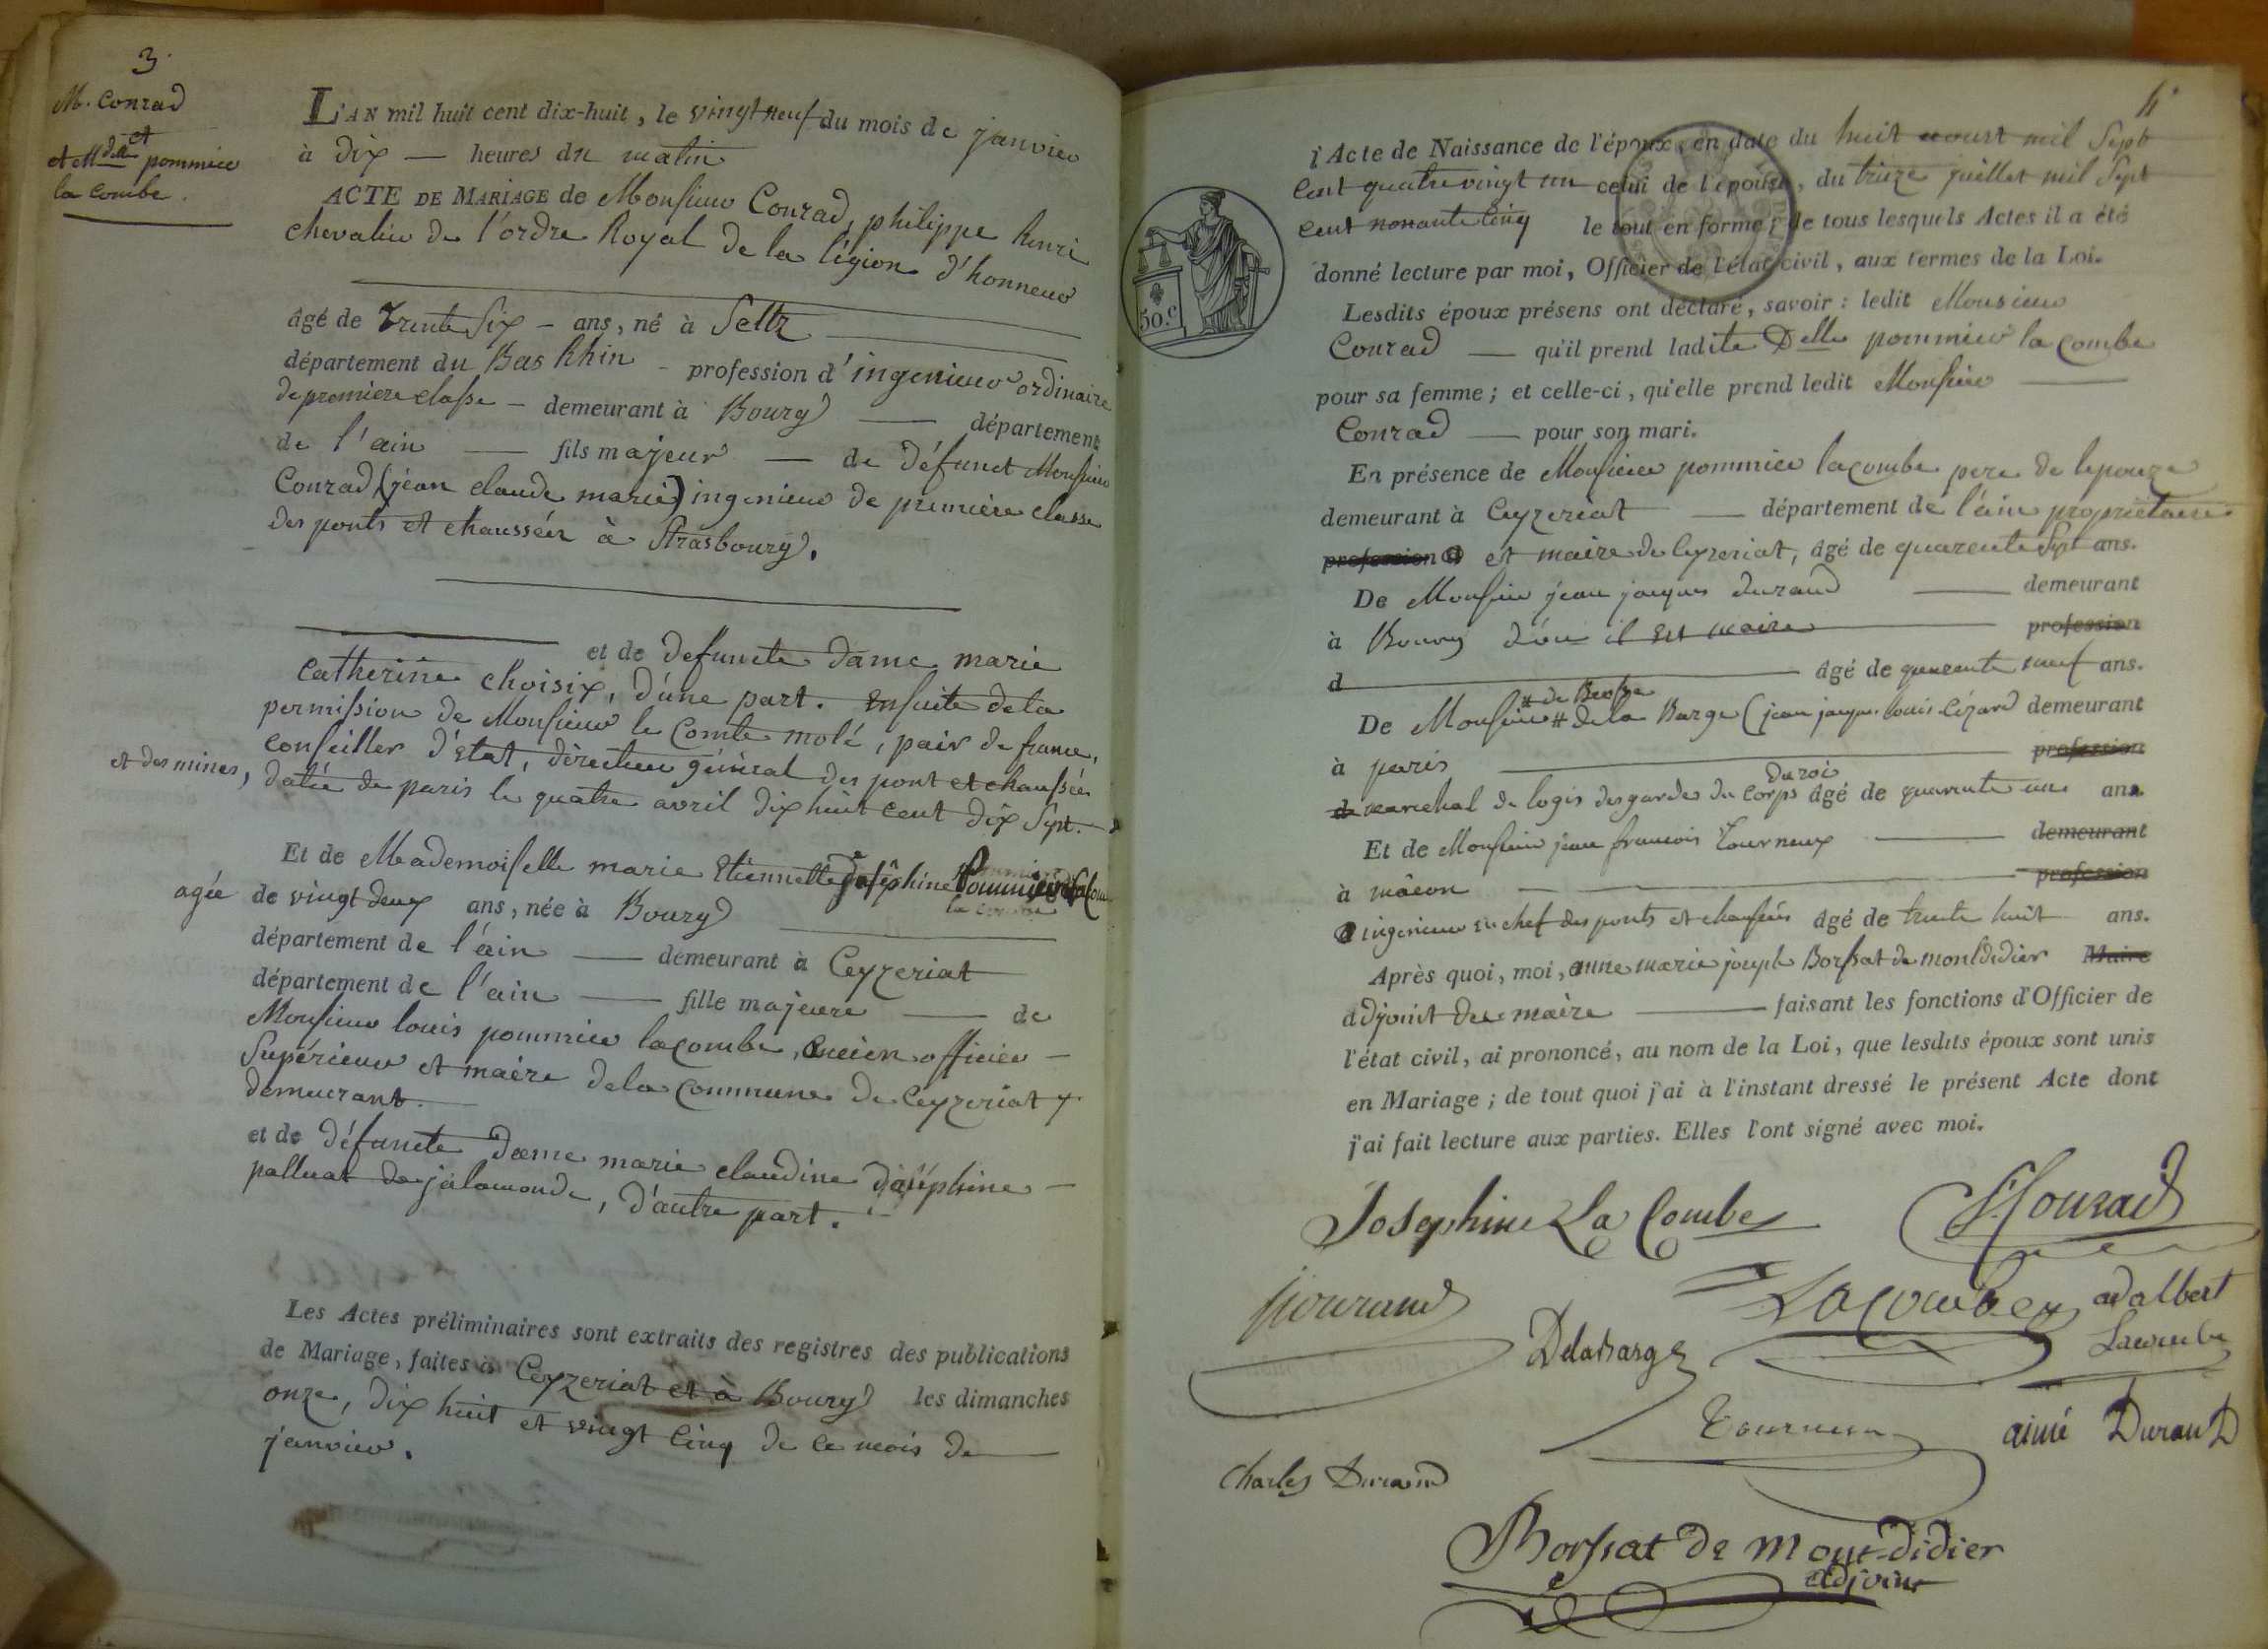 3.
M. Conrad
et
et Mdelle pommier
la combe.
L'AN mil huit cent dix-huit, le vingt neuf du mois de janvier
à dix — heures du matin
ACTE DE MARIAGE de Monsieur Conrad, philippe henri
chevalier de l'ordre Royal de la légion d'honneur
âgé de trente six — ans, né à Seltz
département du Bas Rhin - profession d'ingenieur ordinaire
de premiere classe — demeurant à Bourg — département
de l'ain — fils majeur — de défunct Monsieur
Conrad (jéan claude marie) ingenieur de première classe
des ponts et chaussées à Strasbourg.
et de defuncte dame marie
catherine choisix, d'une part. Ensuite de la
permission de Monsieur le Comte molé, pair de france,
conseiller d'Etat, directeur général des pont et chaussées
et des mines, datée de paris le quatre avril dix huit cent dix sept.
Et de Mademoiselle marie Etiennette joséphine Pommier Lacombe
la combe
agée de vingt deux ans, née à Bourg
département de l'ain — demeurant à Ceyzeriat
département de l'ain — fille majeure — de
Monsieur louis pommier lacombe, ancien officier —
Supérieur et maire de la commune de Ceyzeriat y
demeurant.
et de défuncte Dame marie claudine joséphine —
palluat de jalamonde, d'autre part.
Les Actes préliminaires sont extraits des registres des publications
de Mariage, faites à Ceyzeriat et à Bourg les dimanches
onze, dix huit et vingt cinq de ce mois de
janvier.
4.
l'Acte de Naissance de l'époux, en date du huit aoust mil Sept
Cent quatre vingt un celui de l'épouse, du treize juillet mil Sept
Cent nonante cinq le tout en forme; de tous lesquels Actes il a été
donné lecture par moi, Officier de l'état civil, aux termes de la Loi.
50.c
Lesdits époux présens ont déclaré, savoir: ledit Monsieur
Conrad — qu'il prend ladite Delle pommier la combe
pour sa femme; et celle-ci, qu'elle prend ledit Monsieur —
Conrad — pour son mari.
En présence de Monsieur pommier lacombe pere de lepouze
demeurant à Ceyzeriat — département de l'ain propriétaire
profession d et maire de Ceyzeriat, âgé de quarente Sept ans.
De Monsieur jean jacques durand — demeurant
à Bourg d'ou il Est maire — profession
d — âgé de quarente neuf ans.
# de
De Monsieur # dela Barge (jean jacques louis Cézard demeurant
à paris — profession
du roi
d marechal de logis des gardes du corps âgé de quarente un ans.
Et de Monsieur jean francois Tourneux — demeurant
à mâcon — profession
d ingenieur en chef des ponts et chaussées âgé de trente huit ans.
Après quoi, moi, anne marie joseph Borssat de montdidier Maire
adjoint du maire — faisant les fonctions d'Officier de
l'état civil, ai prononcé, au nom de la Loi, que lesdits époux sont unis
en Mariage; de tout quoi j'ai à l'instant dressé le présent Acte dont
j'ai fait lecture aux parties. Elles l'ont signé avec moi.
Josephine La Combe
Conrad
Lacombe
adalbert
Lacombe
Delabarge
Tourneux
aimé Durand
Charles Durand
Borssat de Mont-didier
adjoint